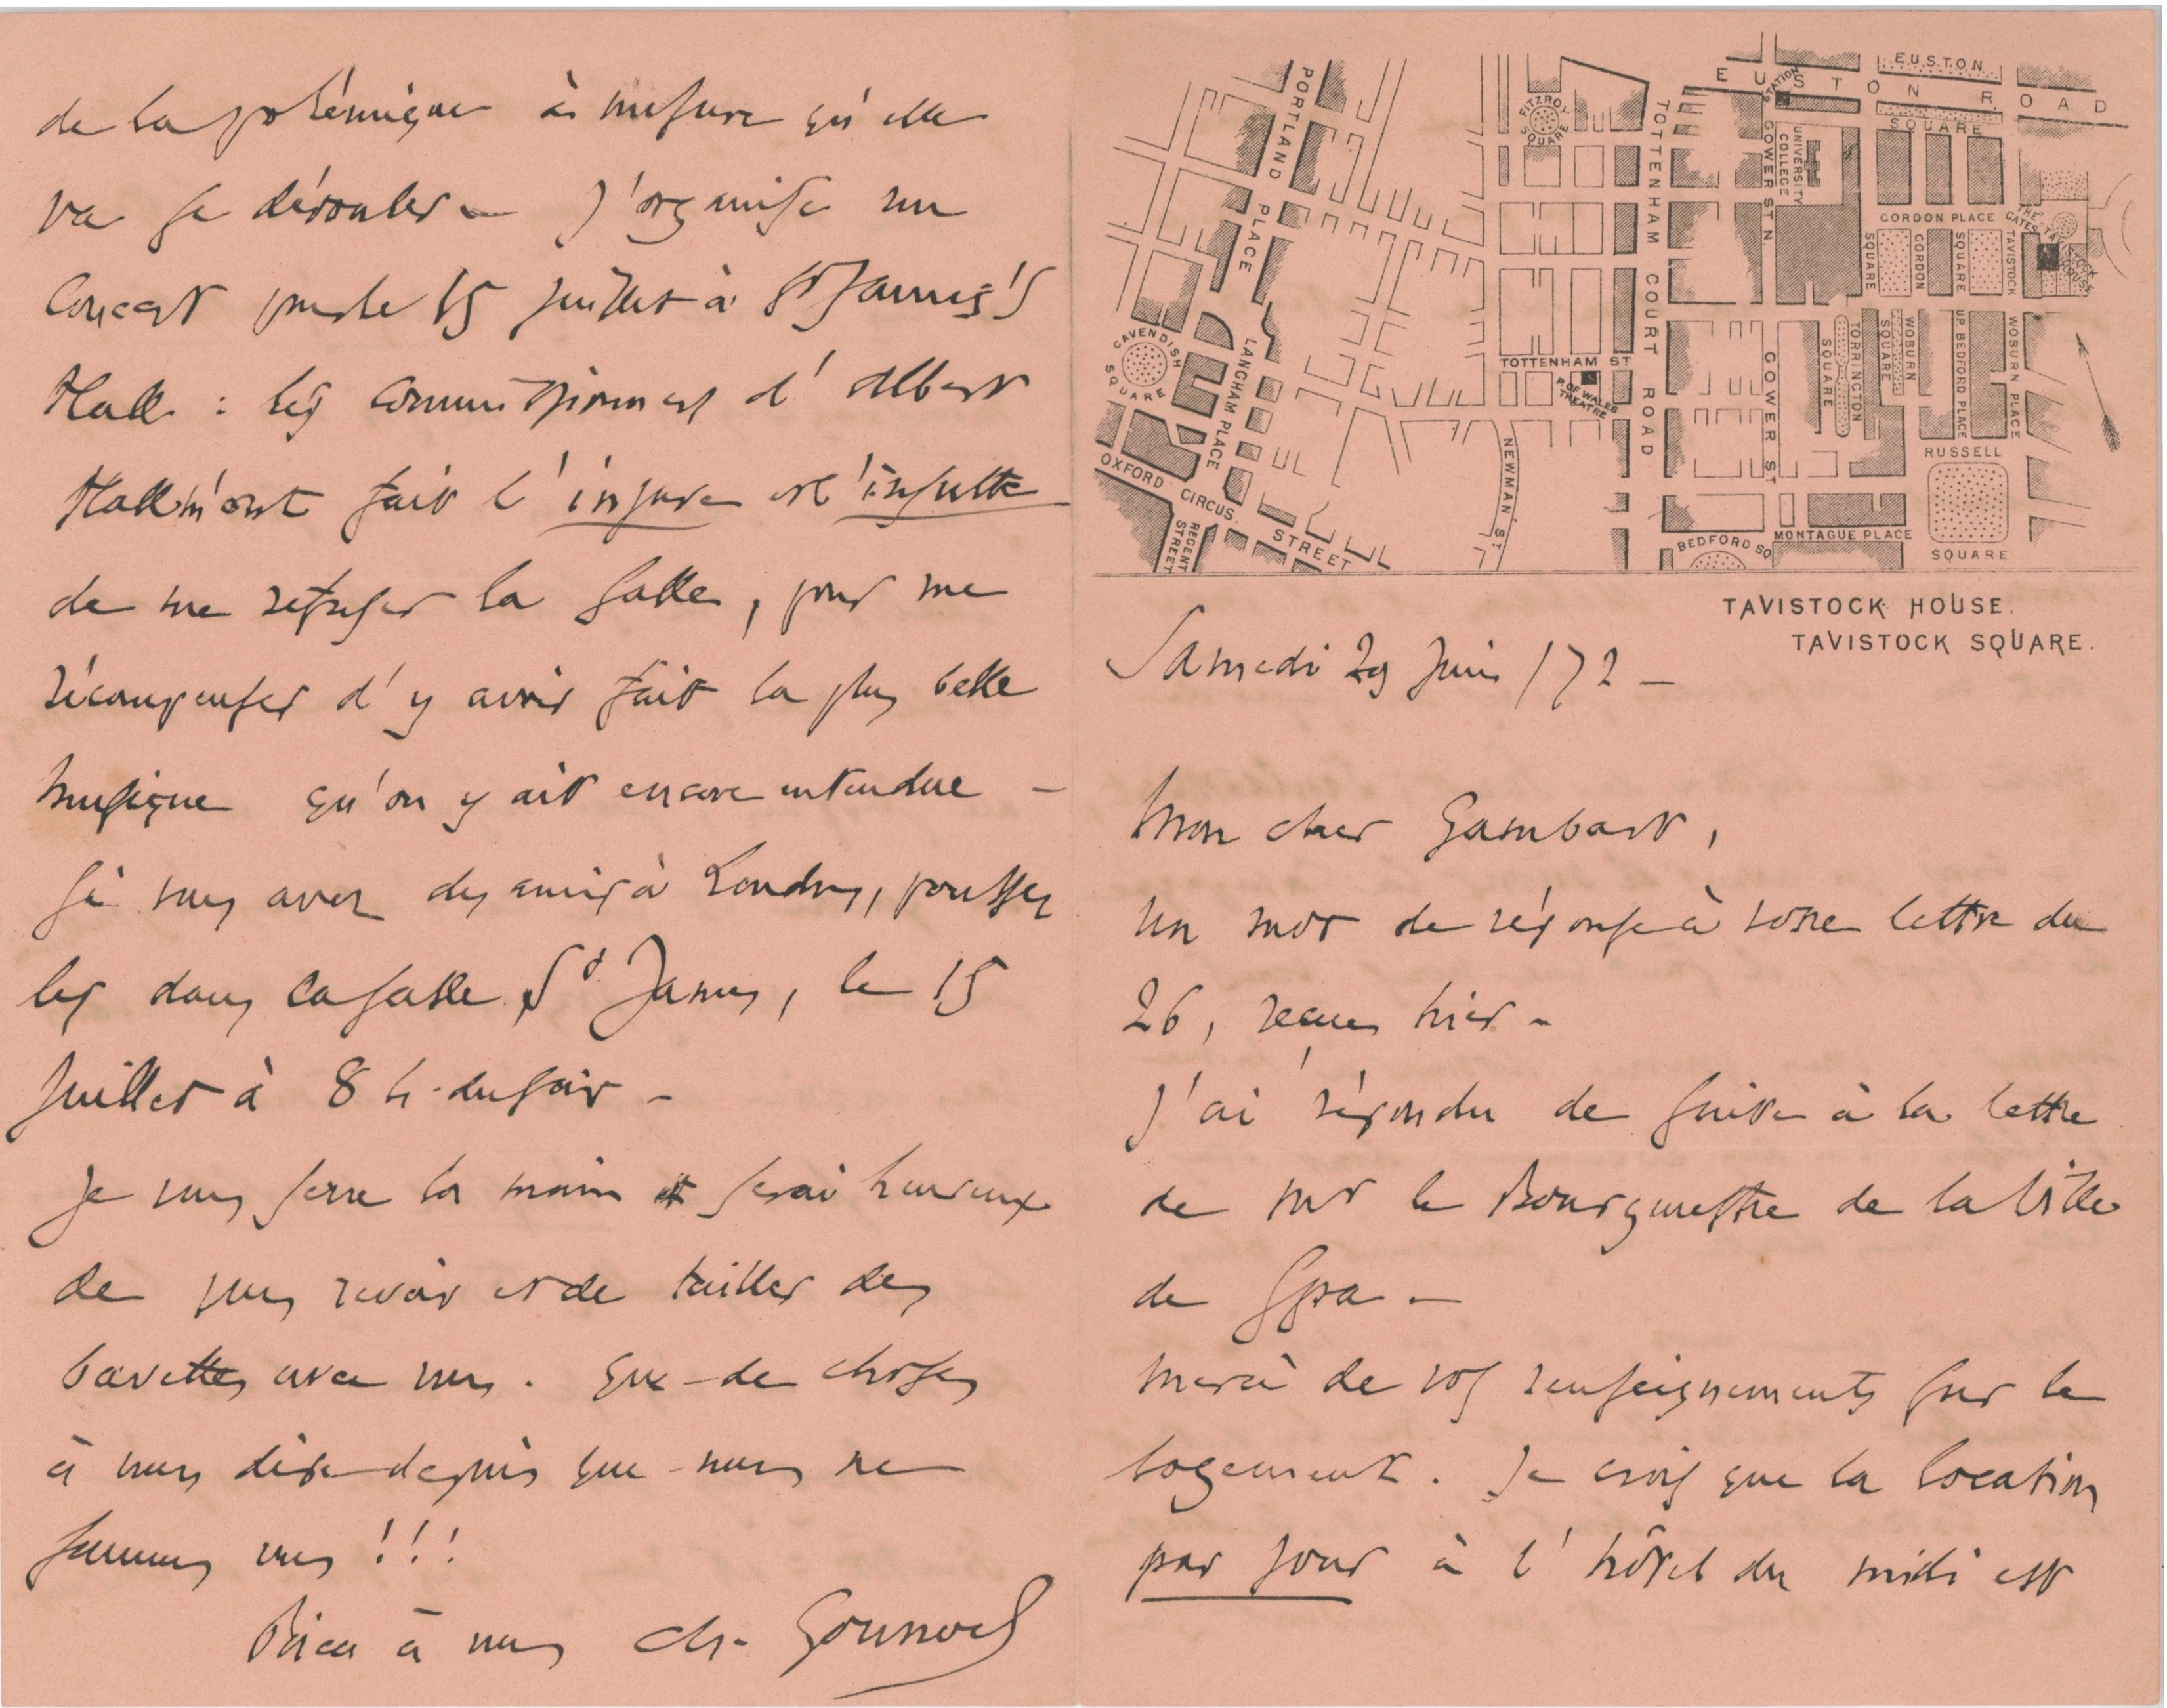 EUSTON
EUSTON ROAD
STATION
SQUARE
PORTLAND PLACE
FITZROY SQUARE
TOTTENHAM COURT ROAD
GOWER ST N
UNIVERSITY COLLEGE
GORDON PLACE
THE GATES
TAVISTOCK HOUSE
SQUARE
GORDON
SQUARE
TAVISTOCK
CAVENDISH SQUARE
LANGHAM PLACE
TOTTENHAM ST
P. OF WALES THEATRE
GOWER ST
SQUARE
TORRINGTON
SQUARE
WOBURN
UP BEDFORD PLACE
WOBURN PLACE
RUSSELL
SQUARE
OXFORD CIRCUS. STREET
REGENT STREET
NEWMAN ST
BEDFORD SQ
MONTAGUE PLACE
TAVISTOCK HOUSE.
TAVISTOCK SQUARE.
Samedi 29 Juin /72 –
Mon cher Gambart,
un mot de réponse à votre lettre du
26, reçue hier –
J'ai répondu de suite à la lettre
de Mr le Bourgmestre de la Ville
de Spa –
Merci de vos renseignements sur le
logement. Je crois que la location
par jour à l'hôtel du midi est
de la polémique à mesure qu'elle
va se dérouler – J'organise un
Concert pour le 15 Juillet à St James's
Hall : les commissionners d'Albert
Hall m'ont fait l'injure et l'insulte
de me refuser la salle, pour me
récompenser d'y avoir fait la plus belle
musique qu'on y ait encore entendue –
Si vous avez des amis à Londres, poussez
les dans la salle St James, le 15
Juillet à 8 h. du soir –
Je vous serre la main et serai heureux
de vous revoir et de tailler des
bavettes avec vous. Que de choses
à nous dire depuis que nous ne
sommes vus !!!
Bien à vous Ch. Gounod